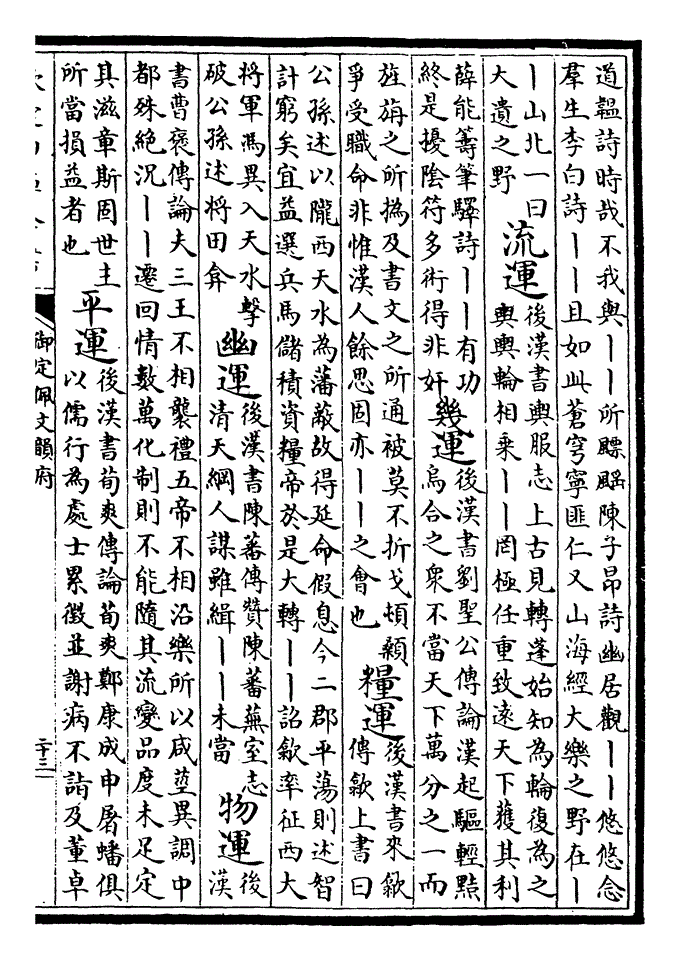 道韞詩時哉不我與丨丨所飄颻陳子昂詩幽居觀丨丨悠悠念
羣生李白詩丨丨且如此蒼穹寧匪仁又山海經大樂之野在丨
丨山北一曰
大遺之野
流運
後漢書輿服志上古見轉蓬始知為輪復為之
輿輿輪相乗丨丨罔極任重致遠天下獲其利
薛能籌筆驛詩丨丨有功
終是擾陰符多術得非奸
幾運
後漢書劉聖公傳論漢起驅輕黠
烏合之衆不當天下萬分之一而
旌旃之所撝及書文之所通被莫不折戈頓顙
爭受職命非惟漢人餘思固亦丨丨之會也
糧運
後漢書來歙
傳歙上書曰
公孫述以隴西天水為藩蔽故得延命假息今二郡平蕩則述智
計窮矣宜益選兵馬儲積資糧帝於是大轉丨丨詔歙率征西大
將軍馮異入天水擊
破公孫述將田弇
幽運
後漢書陳蕃傳贊陳蕃蕪室志
清天綱人謀雖緝丨丨未當
物運
後
漢
書曹褒傳論夫三王不相襲禮五帝不相沿樂所以咸莖異調中
都殊絶况丨丨遷回情數萬化制則不能隨其流變品度未足定
其滋章斯固世主
所當損益者也
平運
後漢書荀爽傳論荀爽鄭康成申屠蟠俱
以儒行為處士累徵並謝病不詣及董卓
御定佩文韻府